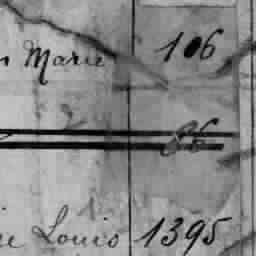 Marie 106
86
Louis 1395